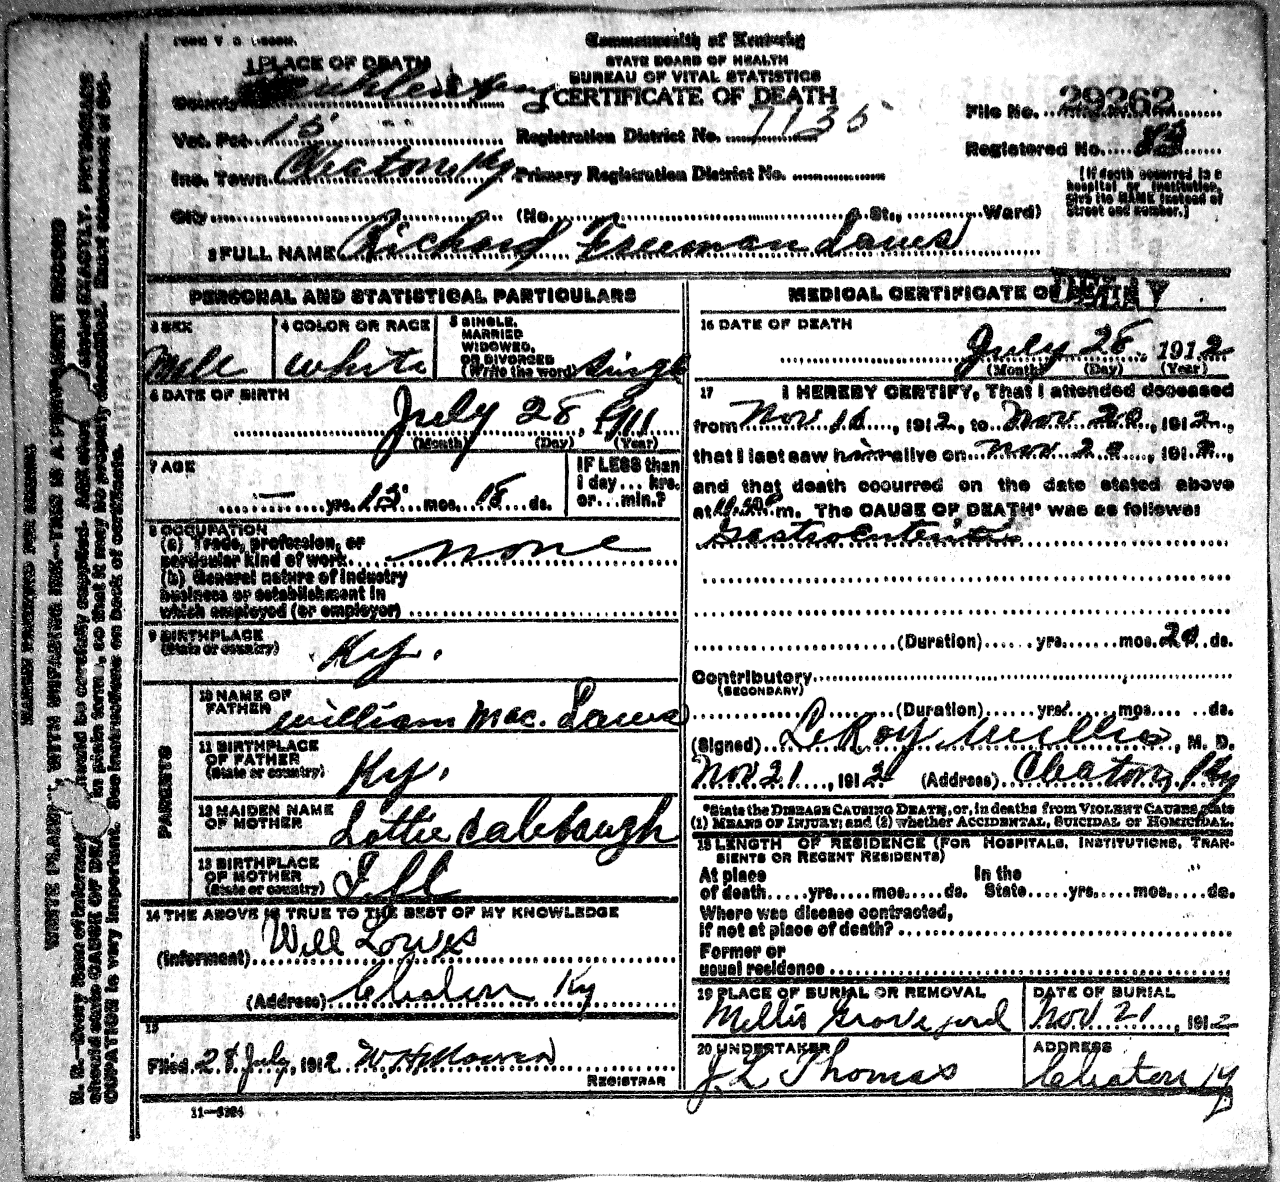 Commonwealth of Kentucky
STATE BOARD OF HEALTH
BUREAU OF VITAL STATISTICS
CERTIFICATE OF DEATH
1 PLACE OF DEATH
County Muhlenberg
Vot. Pct. 15 Registration District No. 7135
File No. 29262
Inc. Town Cleaton Ky Primary Registration District No.
Registered No. 83
City (No. St., Ward)
[If death occurred in a hospital or institution, give its NAME instead of street and number.]
2 FULL NAME Richard Freeman Laws
PERSONAL AND STATISTICAL PARTICULARS
3 SEX
Male
4 COLOR OR RACE
white
5 SINGLE, MARRIED WIDOWED, OR DIVORCED (Write the word) Single
6 DATE OF BIRTH
July 28, 1911
(Month) (Day) (Year)
7 AGE
— yrs. 15 mos. 18 ds.
IF LESS than 1 day... hrs. or... min.?
8 OCCUPATION
(a) Trade, profession, or particular kind of work none
(b) General nature of industry business or establishment in which employed (or employer)
9 BIRTHPLACE
(State or country) Ky.
PARENTS
10 NAME OF FATHER William Mac. Laws
11 BIRTHPLACE OF FATHER (State or country) Ky.
12 MAIDEN NAME OF MOTHER Lottie Calebaugh
13 BIRTHPLACE OF MOTHER (State or country) Ill
14 THE ABOVE IS TRUE TO THE BEST OF MY KNOWLEDGE
(Informant) Will Lows
(Address) Cleaton Ky
15
Filed 28 July, 1912
REGISTRAR
11—5184
MEDICAL CERTIFICATE OF DEATH
16 DATE OF DEATH
July 28, 1912
(Month) (Day) (Year)
17 I HEREBY CERTIFY, That I attended deceased
from Nov 11, 1912, to Nov 20, 1912,
that I last saw him alive on Nov 20, 1912,
and that death occurred on the date stated above
at m. The CAUSE OF DEATH* was as follows:
Gastroenteritis
(Duration) yrs. mos. 20 ds.
Contributory
(SECONDARY)
(Duration) yrs. mos. ds.
(Signed) LeRoy Willis, M. D.
Nov 21, 1912 (Address) Cleaton, Ky
*State the DISEASE CAUSING DEATH, or, in deaths from VIOLENT CAUSES, state
(1) MEANS OF INJURY; and (2) whether ACCIDENTAL, SUICIDAL or HOMICIDAL.
18 LENGTH OF RESIDENCE (FOR HOSPITALS, INSTITUTIONS, TRANSIENTS OR RECENT RESIDENTS)
At place of death yrs. mos. ds. In the State yrs. mos. ds.
Where was disease contracted,
if not at place of death?
Former or
usual residence
19 PLACE OF BURIAL OR REMOVAL
DATE OF BURIAL
Nov. 21, 1912
20 UNDERTAKER
J L Thomas
ADDRESS
Cleaton Ky
MARGIN RESERVED FOR BINDING